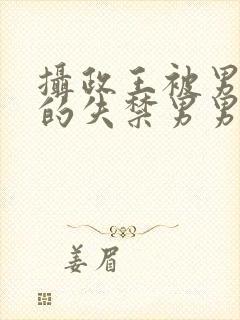 攝政王被男
的失禁男男
姜眉